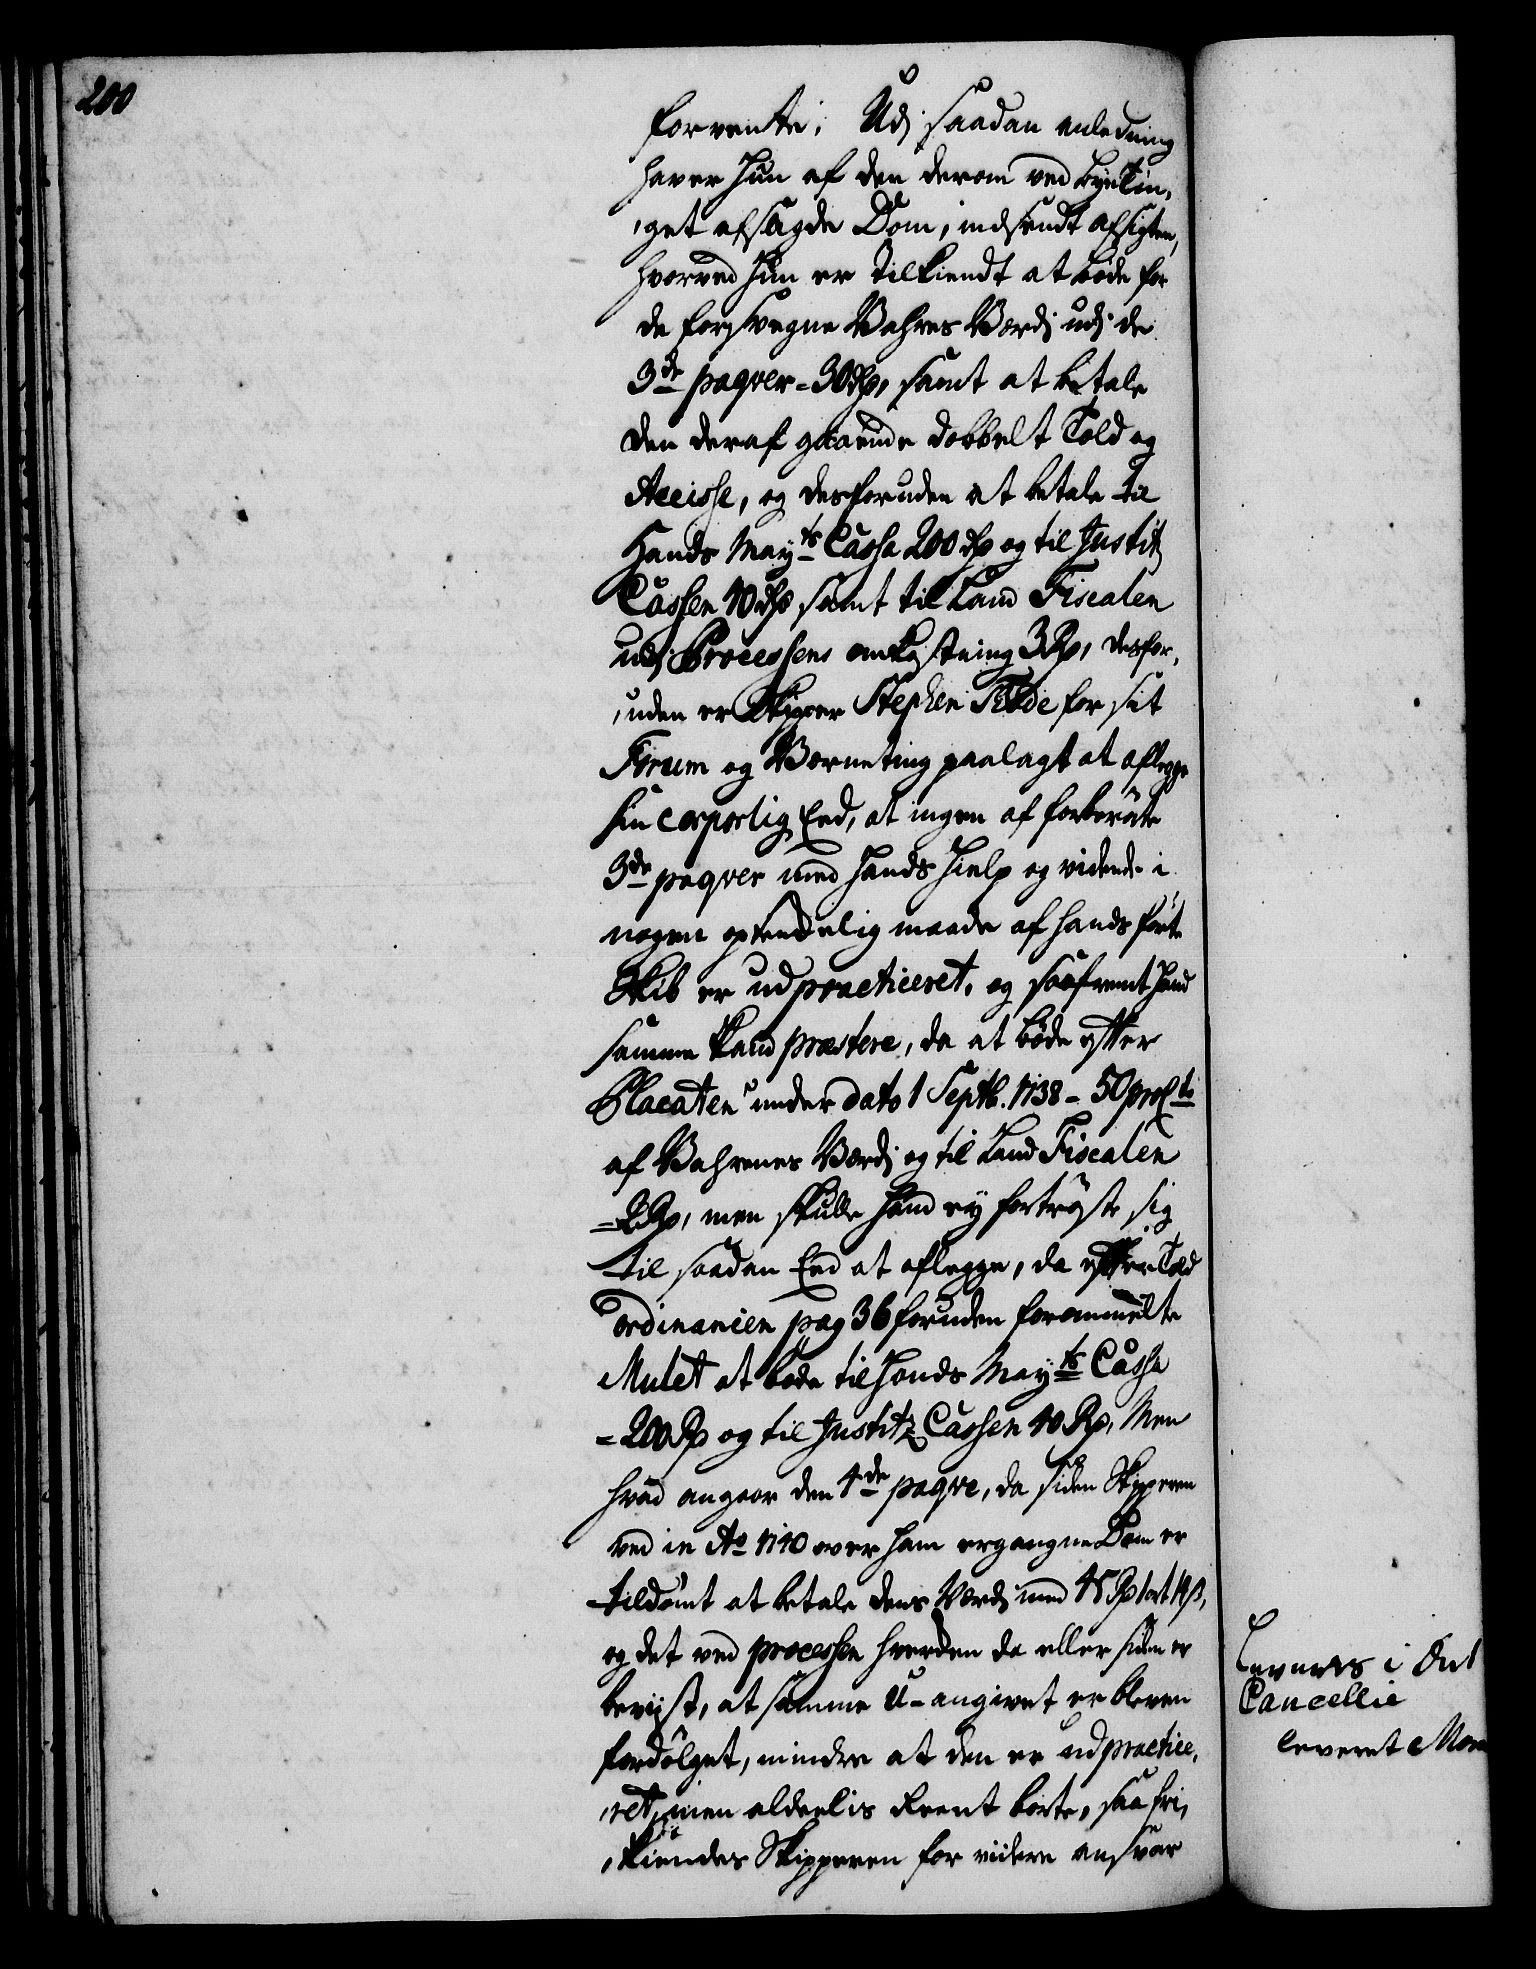 200
forvente; Udj saadan anledning
haver hun af den derom ved byeTin,
,get afsagde Dom, indsendt afsigten,
hvorved hun er Tilkiendt at bøde for
de forsvegne Vahres Værdj udj de
3de paqver - 30 Rd, samt at betale
den deraf gaaende dobbelt Told og
Accisse, og desforuden at betale til
Hands Mayts Cassa 200 Rd og til Justitz
Cassen 40 Rd samt til Land Fiscalen
udj Processens omkostning 3 Rd, desfor,
,uden er Skipper Stephen for sit
Forum og Værneting paalagt at aflegge
sin corporlig Eed, at ingen af forberørte
3de paqver med hands Hielp og vidende i
nogen optendelig maade af hands førte
Skib er udpracticeret, og saafremt hand
samme kand præstere, da at bøde efter
Placaten under dato 1 Septb. 1738 - 50 proCto
af Vahrenes Værdj og til Land Fiscalen
- 2 Rd, men skulle hand ey fortrøste sig
til saadan Eed at aflegge, da efter Told
ordinancen pag 36 foruden forommelte
Mulct at bøde til Hands Mayts Cassa
- 200 Rd og til Justitz Cassen 40 Rd, Men
hvad angaar den 4de paqve, da siden Skipperen
ved in Ao 1740 over ham ergangne Dom er
tildømt at betale dens Værdj med 45 Rd 1 ort 14 s,
og det ved processen hverden da eller siden er
beviist, at samme U-angivet er bleven
fordølget, mindre at den er udpractice,
,ret, men aldeelis Reent borte, saa fri,
,kiendes Skipperen for videre ansvar
Leveres i
Cancellie
leveret